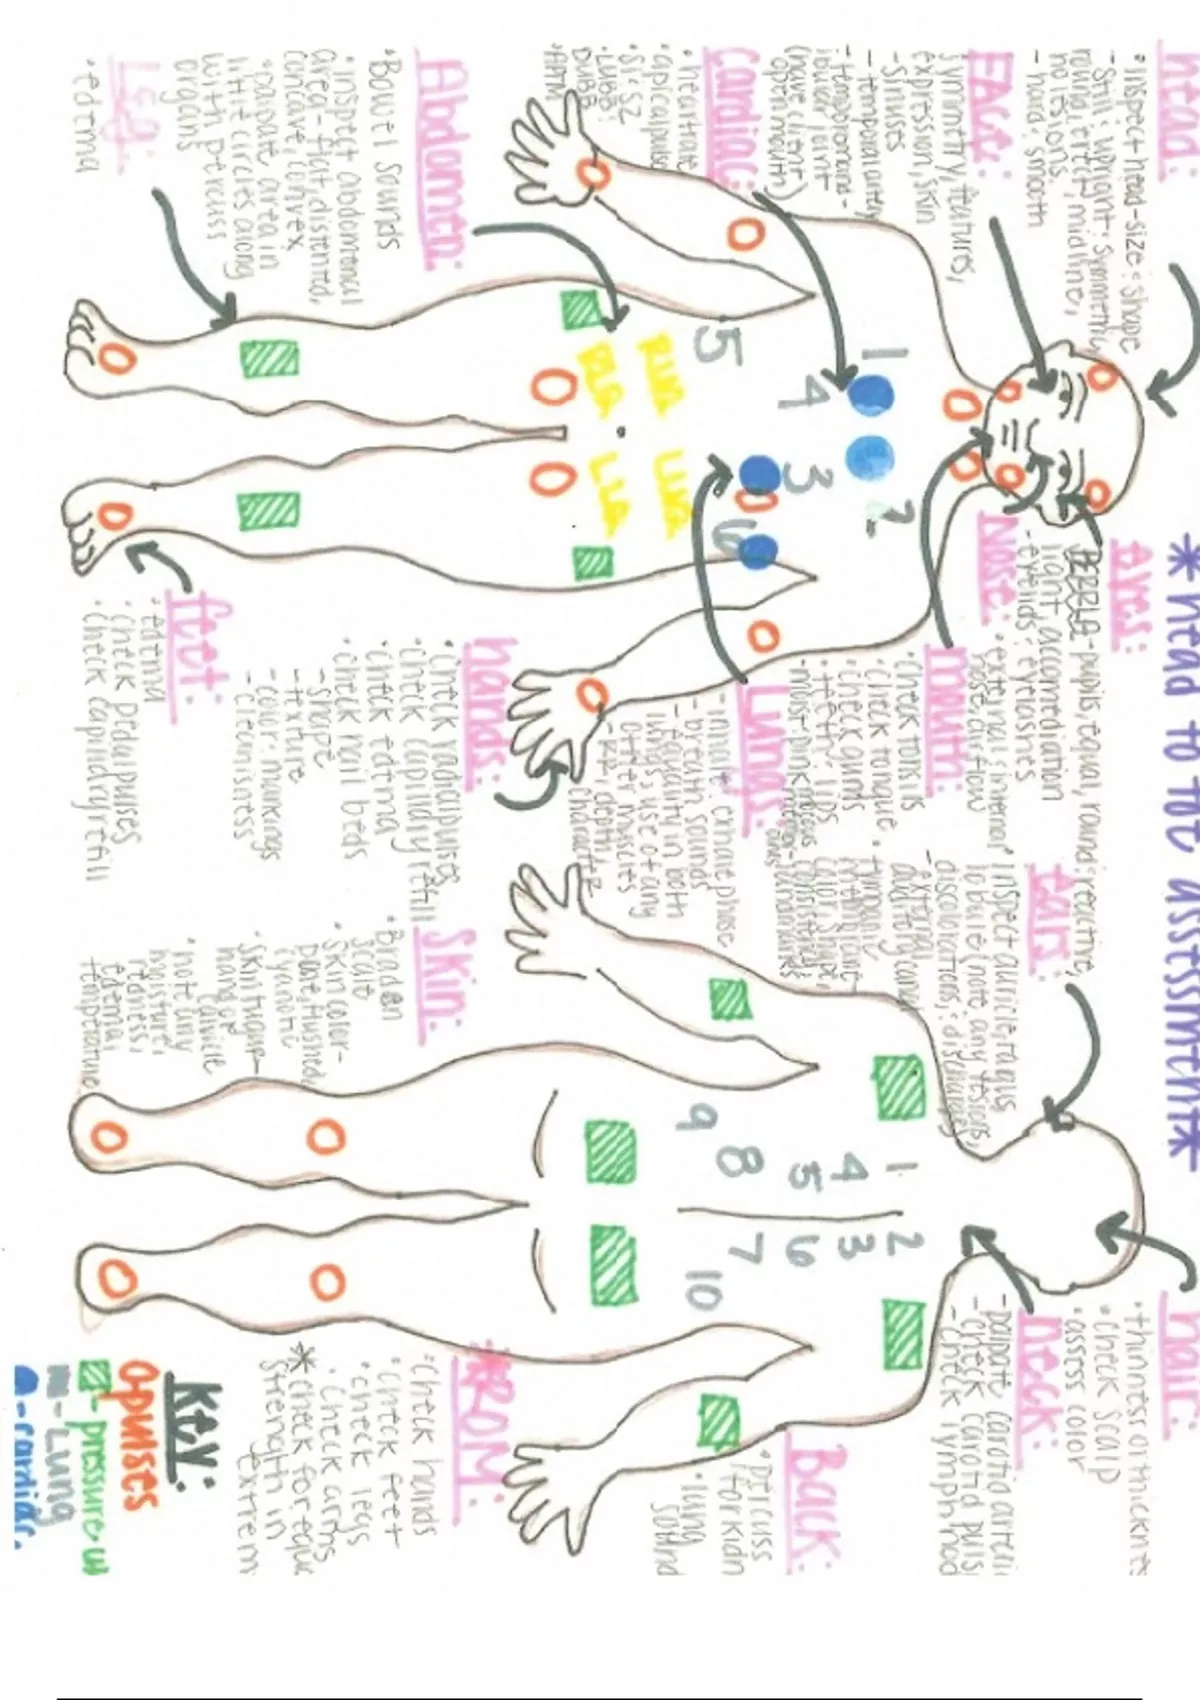 *Head to toe assessment*
Head:
•Inspect head-size: shape
- Still: upright: symmetry
round, erect, midline,
no lesions.
- hard, smooth
FACE:
symmetry, features,
expression, skin
- sinuses
- temporal artery
(have client
open mouth)
Cardiac:
•heartrate
•apical pulse
•S1: S2
Abdomen:
•Bowel sounds
•inspect abdominal
area - flat, distented,
concave, convex
little circles along
with percuss
organs
Leg:
•edema
1
2
3
4
5
6
RUQ
LUQ
RLQ
LLQ
Eyes:
PERRLA-pupils, equal, round: reactive,
light, accomediation
-eyelids: eyelashes
Nose:
•external: internal
nose, airflow
mouth:
check tonsils
check tongue
check gums
•teeth: lips
Lungs:
-inhale: exhale phase
-breath sounds
-equality in both
lungs: use of any
other muscles
hands:
•Check radial pulses
check capillary refill
•check edema
•check nail beds
- shape
- texture
- color: markings
- cleanliness
feet:
•edema
•check pedal pulses
•check capillary refill
Ears:
•Inspect auricle, tragus
lobule (note any lesions,
discolorations, : discharge)
- external
auditory canal
•tympanic
Skin:
•Braden
scale
•Skin color-
pale, flushed,
cyanotic
•Skin turgor-
hand or
clavicle
•note any
moisture,
redness,
edema,
temperature
1
2
3
4
5
6
7
8
9
10
hair:
•thinness or thicknes
•check scalp
•assess color
neck:
-check carotid puls
-check lymph nod
Back:
•percuss
for kidn
•lung
sound
*ROM:
•check hands
•check feet
•check legs
•check arms
*check for equa
strength in
extrem
Key:
O pulses
- pressure u
- Lung
- cardiac.